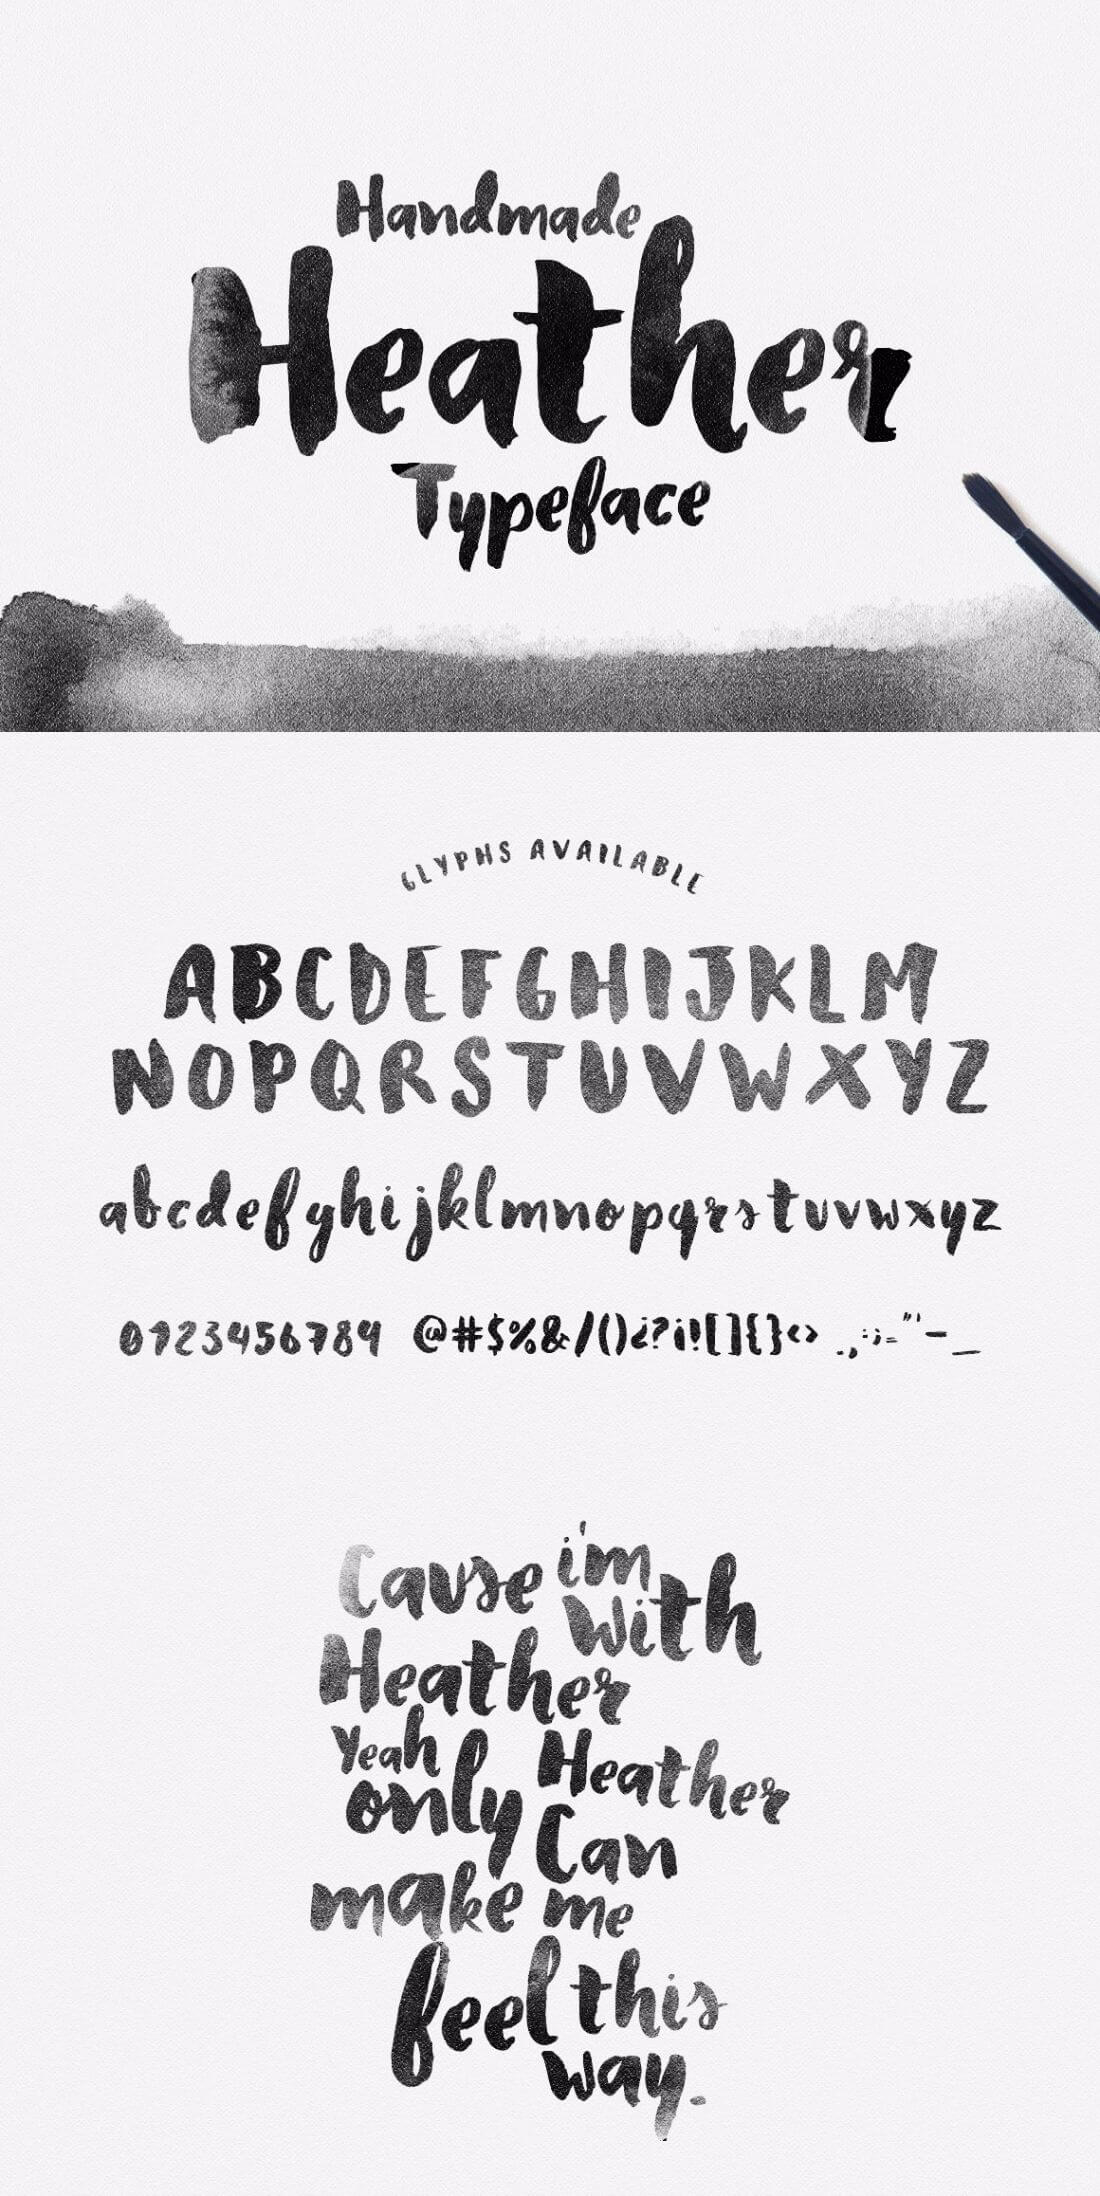 Handmade
Heather
Typeface
GLYPHS AVAILABLE
ABCDEFGHIJKLM
NOPQRSTUVWXYZ
abcdefghijklmnopqrstuvwxyz
0123456789 @#$%&/()¿?¡![]{}<> .,:;="'-_
Cause i'm
With
Heather
Yeah Heather
only Can
make me
feel this
way.